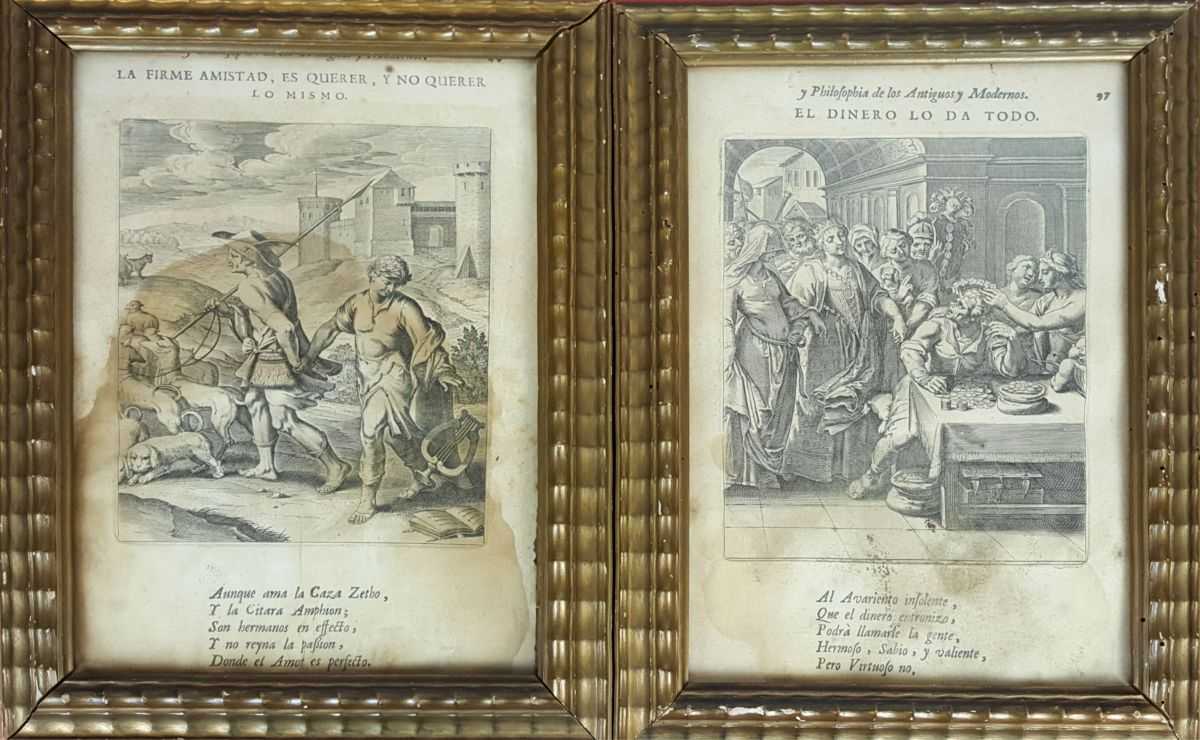 LA FIRME AMISTAD, ES QUERER, Y NO QUERER
LO MISMO.
Aunque ama la Caza Zetho,
Y la Citara Amphion;
Son hermanos en effecto,
Y no reyna la passion,
Donde el Amor es perfecto.
y Philosophia de los Antiguos y Modernos. 97
EL DINERO LO DA TODO.
Al Avariento insolente,
Que el dinero entronizo,
Podrà llamarle la gente,
Hermoso, Sabio, y valiente,
Pero Virtuoso no.